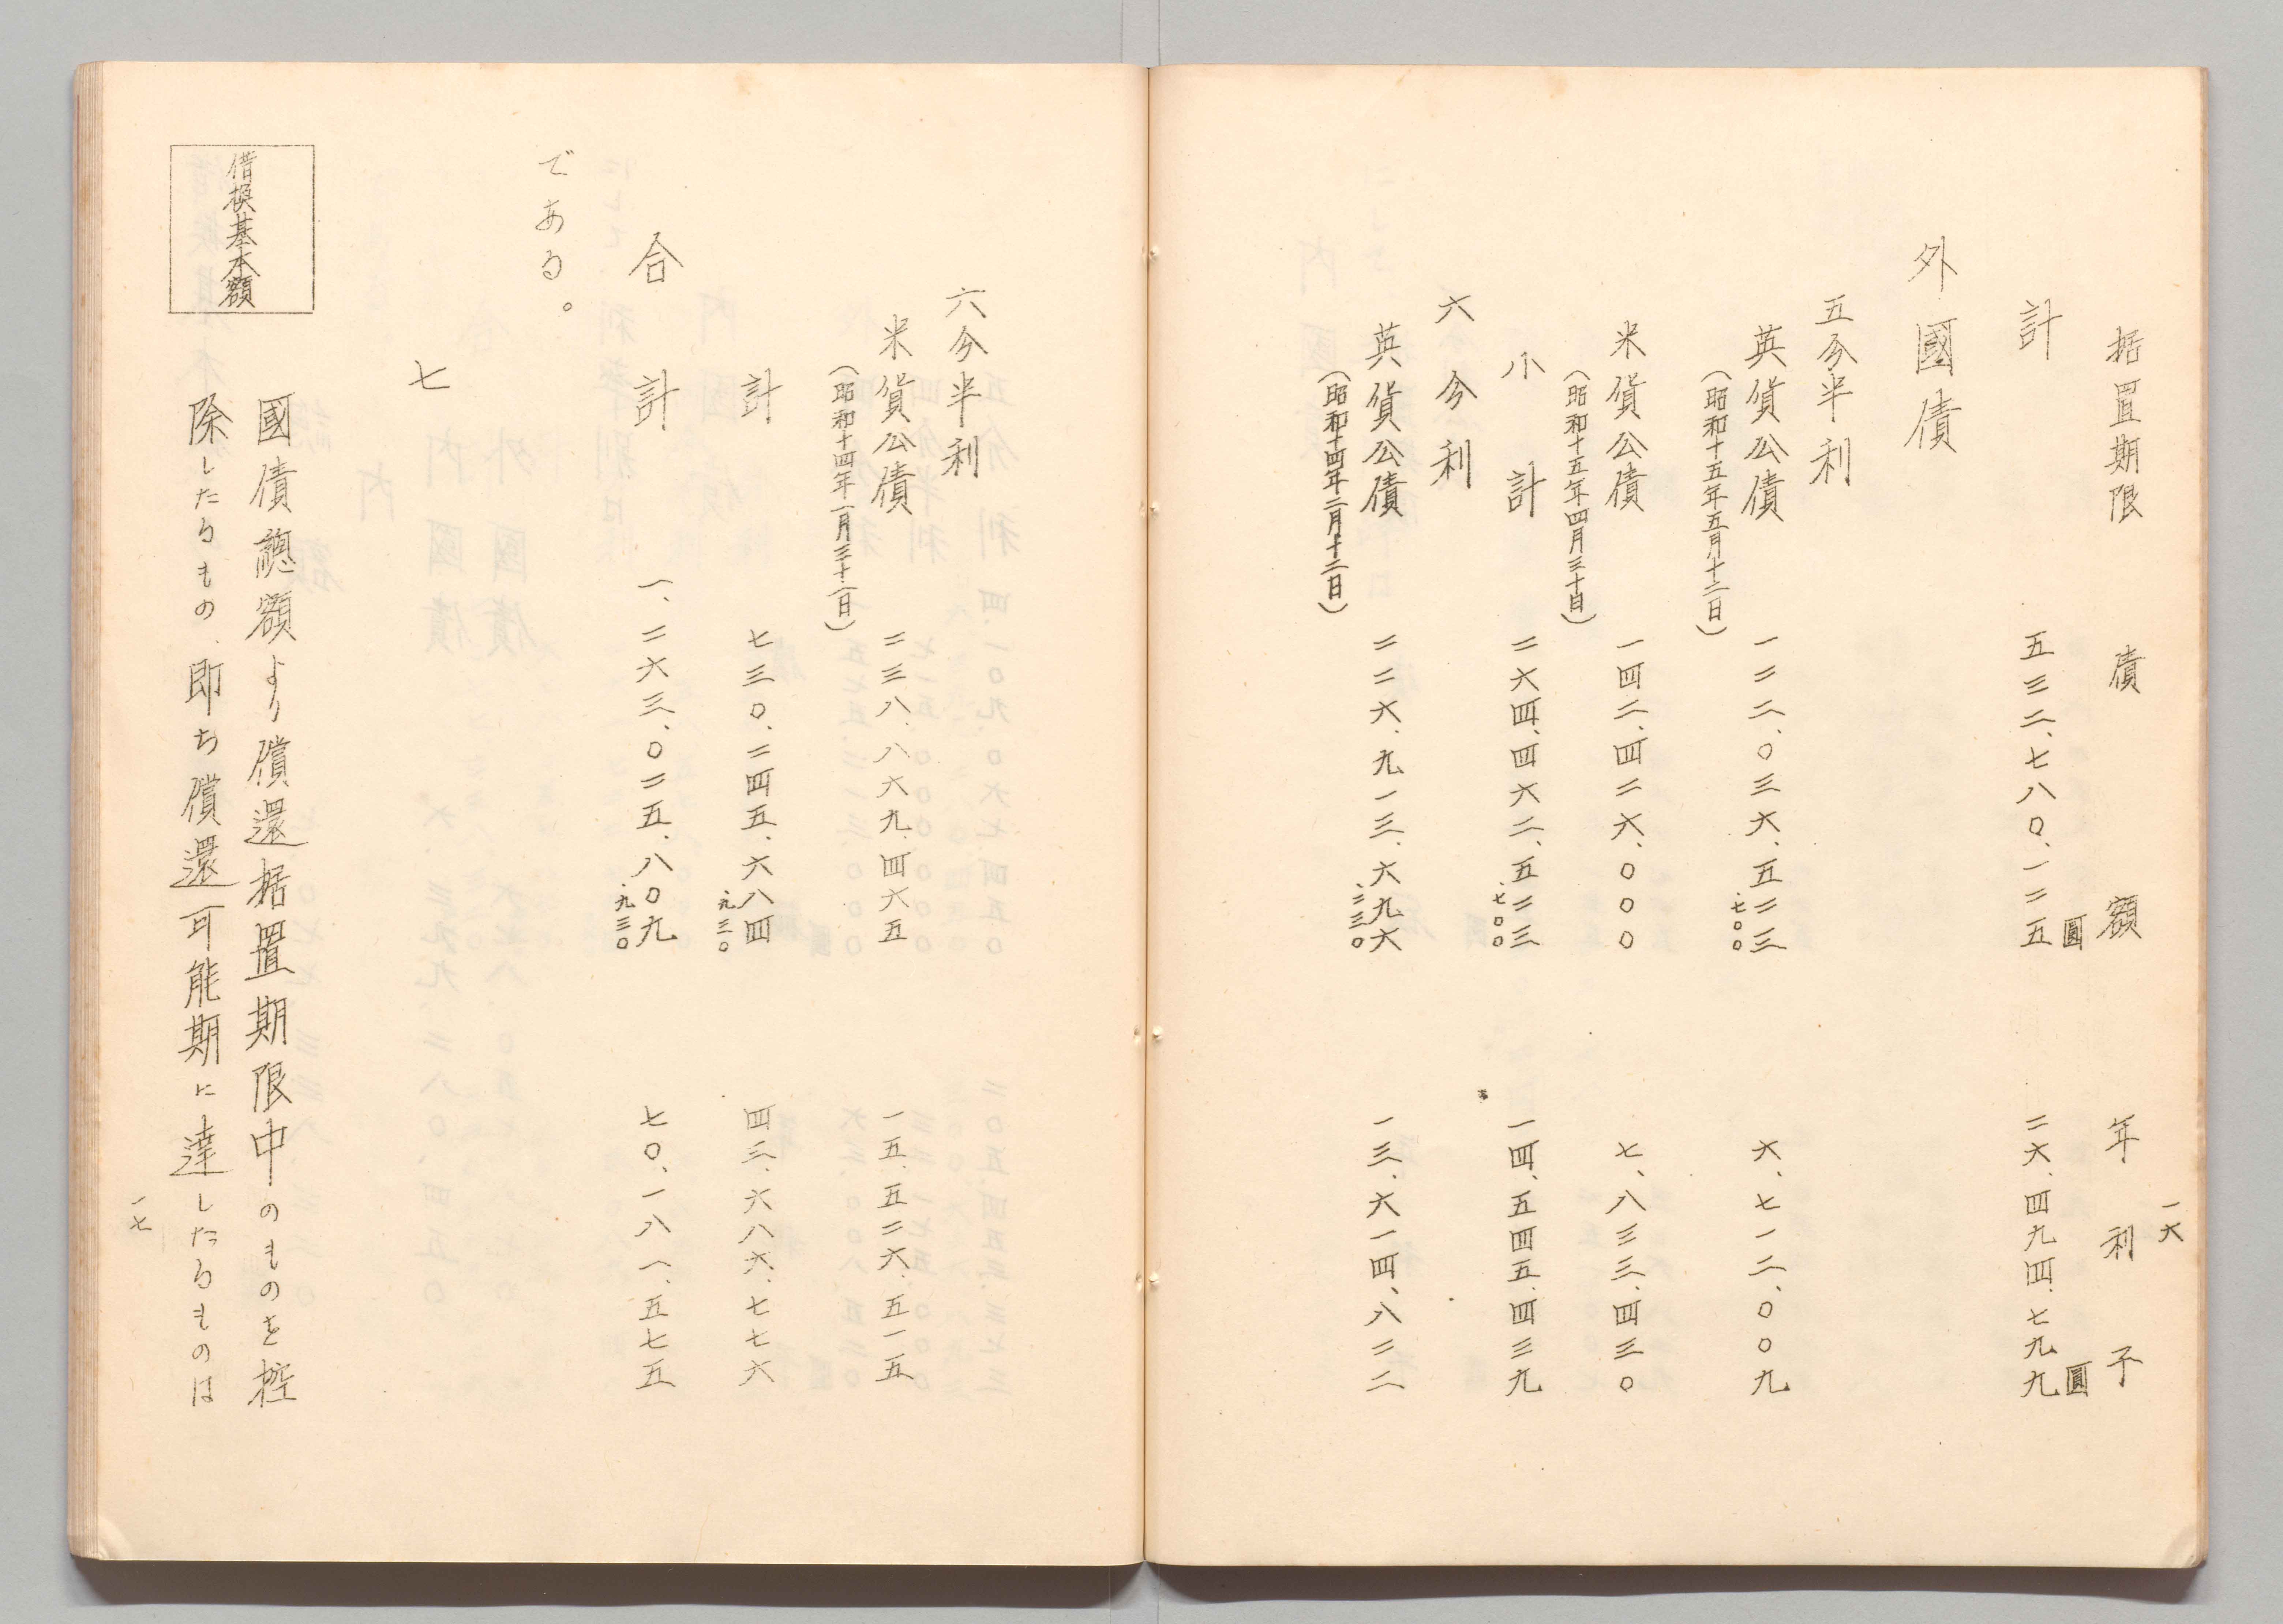 一六
据置期限　債額　年利子
計　五三二、七八〇、一二五圓　二六、四九四、七九九圓
外國債
五分半利
英貨公債　一二二、〇三六、五二三.七〇〇　六、七一二、〇〇九
（昭和十五年五月十二日）
米貨公債　一四二、四二六、〇〇〇　七、八三三、四三〇
（昭和十五年四月三十日）
小計　二六四、四六二、五二三.七〇〇　一四、五四五、四三九
六分利
英貨公債　二二六、九一三、六九六.二三〇　一三、六一四、八二二
（昭和十四年二月十二日）
六分半利
米貨公債　二三八、八六九、四六五　一五、五二六、五一五
（昭和十四年一月三十一日）
計　七三〇、二四五、六八四.九三〇　四三、六八六、七七六
合計　一、二六三、〇二五、八〇九.九三〇　七〇、一八一、五七五
である。
七
借換基本額
國債總額より償還据置期限中のものを控
除したるもの、即ち償還可能期に達したるものは
一七